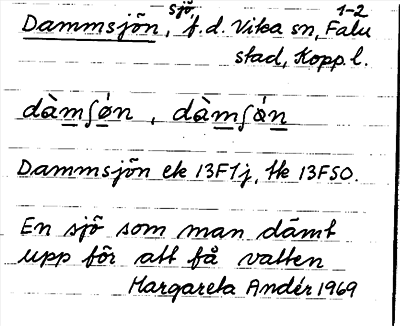 Dammsjön, sjö, f.d. Vika sn, Falu 1-2
stad, Kopp. l.
dàm̲ʃǿ̲n, dàm̲ʃǿn̲
Dammsjön ek 13F1j, tk 13FSO.
En sjö som man dämt
upp för att få vatten
Margareta Andér 1969